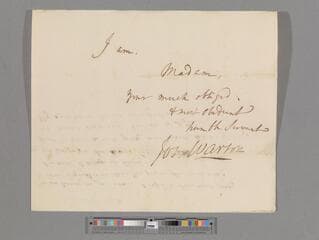 I am.
Madam,
Your much obliged.
& most obedient
humble Servant
Jos Warton